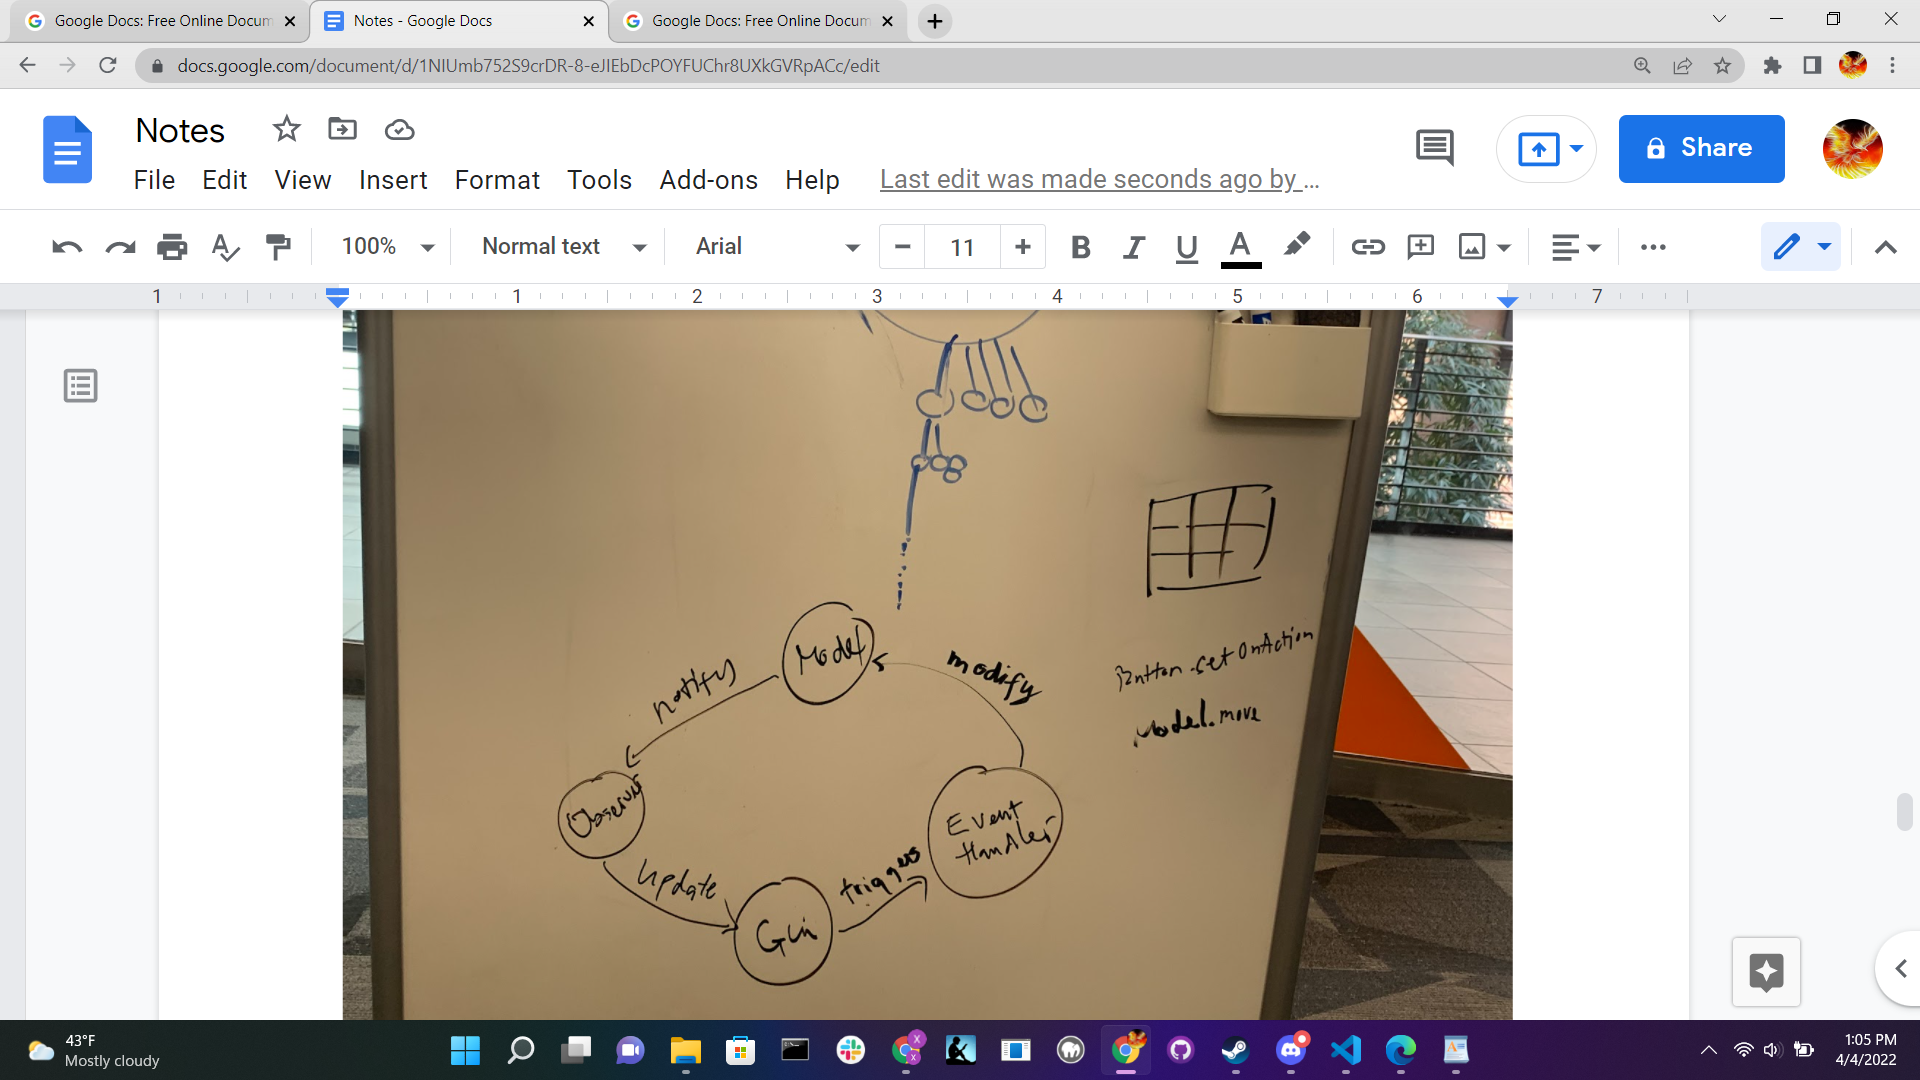 Google Docs: Free Online Docum
Notes - Google Docs
Google Docs: Free Online Docum
docs.google.com/document/d/1NIUmb752S9crDR-8-eJIEbDcPOYFUChr8UXkGVRpACc/edit
Notes
File Edit View Insert Format Tools Add-ons Help Last edit was made seconds ago by ...
Share
100% Normal text Arial 11 B I U A
1 1 2 3 4 5 6 7
Model
notify
modify
Button.setOnAction
Model.move
Observer
Event
Handler
update
triggers
Gui
43°F
Mostly cloudy
1:05 PM
4/4/2022